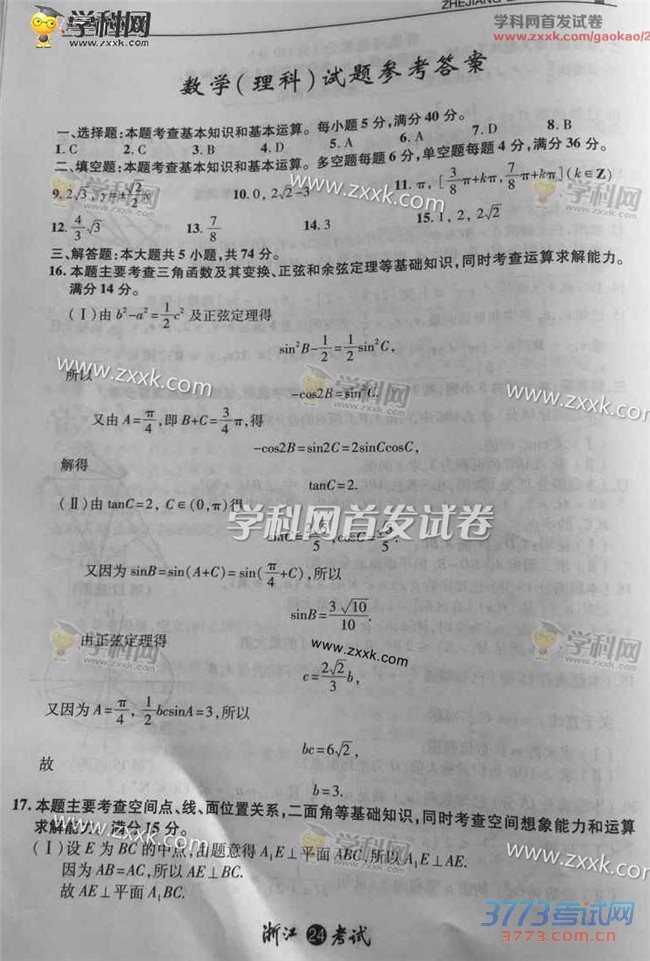 ZHEJIANG
学科网
www.zxxk.com
学科网首发试卷
www.zxxk.com/gaokao/2
数学(理科)试题参考答案
一、选择题:本题考查基本知识和基本运算。每小题5分,满分40分。
1.C 2.C 3.B 4.D 5.A 6.A 7.D 8.B
二、填空题:本题考查基本知识和基本运算。多空题每题6分,单空题每题4分,满分36分。
9.2√3, y=±√2/2 x 10.0, 2√2-3 11.π, [3/8π+kπ, 7/8π+kπ](k∈Z)
学科网
www.zxxk.com
12.4/3√3 13.7/8 14.3 15.1, 2, 2√2
三、解答题:本大题共5小题,共74分。
16.本题主要考查三角函数及其变换、正弦和余弦定理等基础知识,同时考查运算求解能力。
满分14分。
(Ⅰ)由b²-a²=1/2c²及正弦定理得
sin²B-1/2=1/2sin²C,
所以
www.zxxk.com
学科网
www.zxxk.com
-cos2B=sin²C.
又由A=π/4,即B+C=3/4π,得
-cos2B=sin2C=2sinCcosC,
解得
tanC=2.
(Ⅱ)由tanC=2, C∈(0,π)得
学科网首发试卷
sinC=2√5/5, cosC=√5/5.
又因为sinB=sin(A+C)=sin(π/4+C),所以
sinB=3√10/10.
学科网
www.zxxk.com
学科网
由正弦定理得
c=2√2/3b,
又因为A=π/4, 1/2bcsinA=3,所以
bc=6√2,
故
b=3.
17.本题主要考查空间点、线、面位置关系,二面角等基础知识,同时考查空间想象能力和运算
求解能力。满分15分。
学科网
www.zxxk.com
(Ⅰ)设E为BC的中点,由题意得A₁E⊥平面ABC,所以A₁E⊥AE.
因为AB=AC,所以AE⊥BC.
故AE⊥平面A₁BC.
浙江 24 考试
3773考试网
3773.com.cn